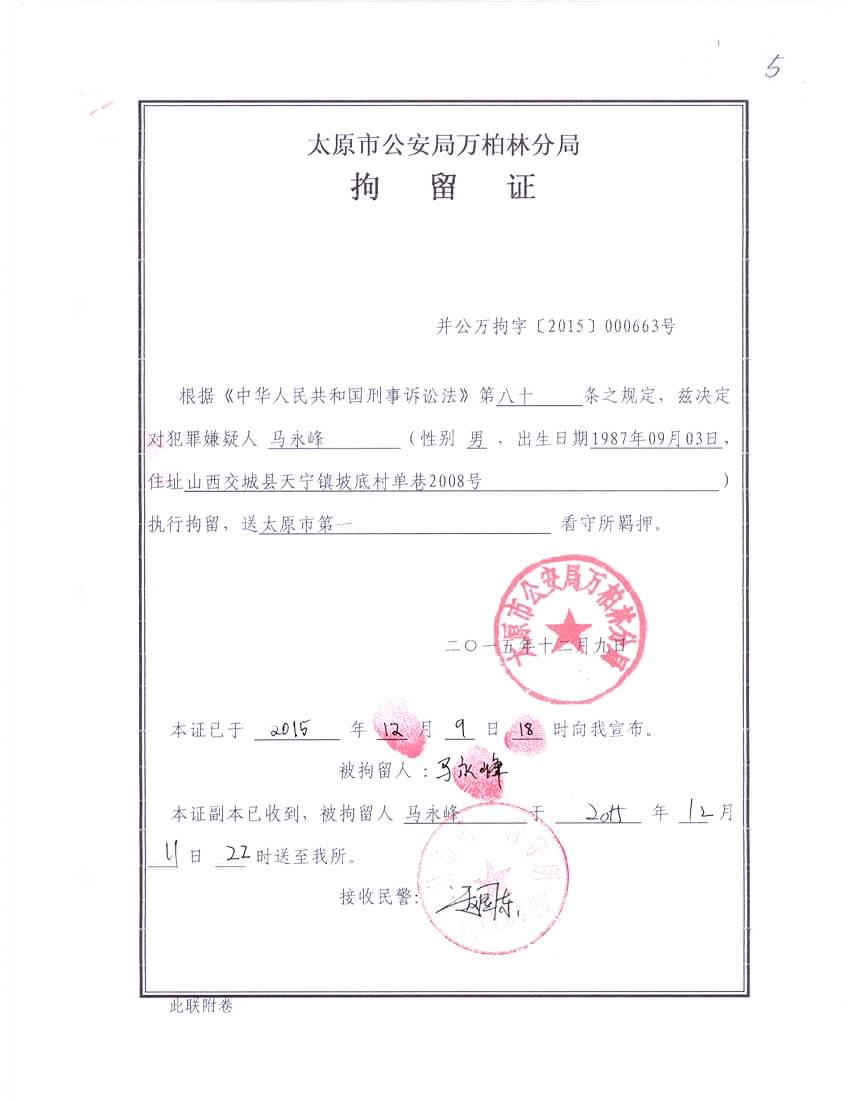 5
太原市公安局万柏林分局
拘 留 证
并公万拘字〔2015〕000663号
根据《中华人民共和国刑事诉讼法》第八十 条之规定，兹决定
对犯罪嫌疑人 马永峰 （性别 男 ，出生日期1987年09月03日，
住址山西交城县天宁镇坡底村单巷2008号 ）
执行拘留，送太原市第一 看守所羁押。
太原市公安局万柏林分局
二〇一五年十二月九日
本证已于 2015 年 12 月 9 日 18 时向我宣布。
被拘留人：马永峰
本证副本已收到，被拘留人 马永峰 于 2015 年 12 月
11 日 22 时送至我所。
接收民警：
此联附卷